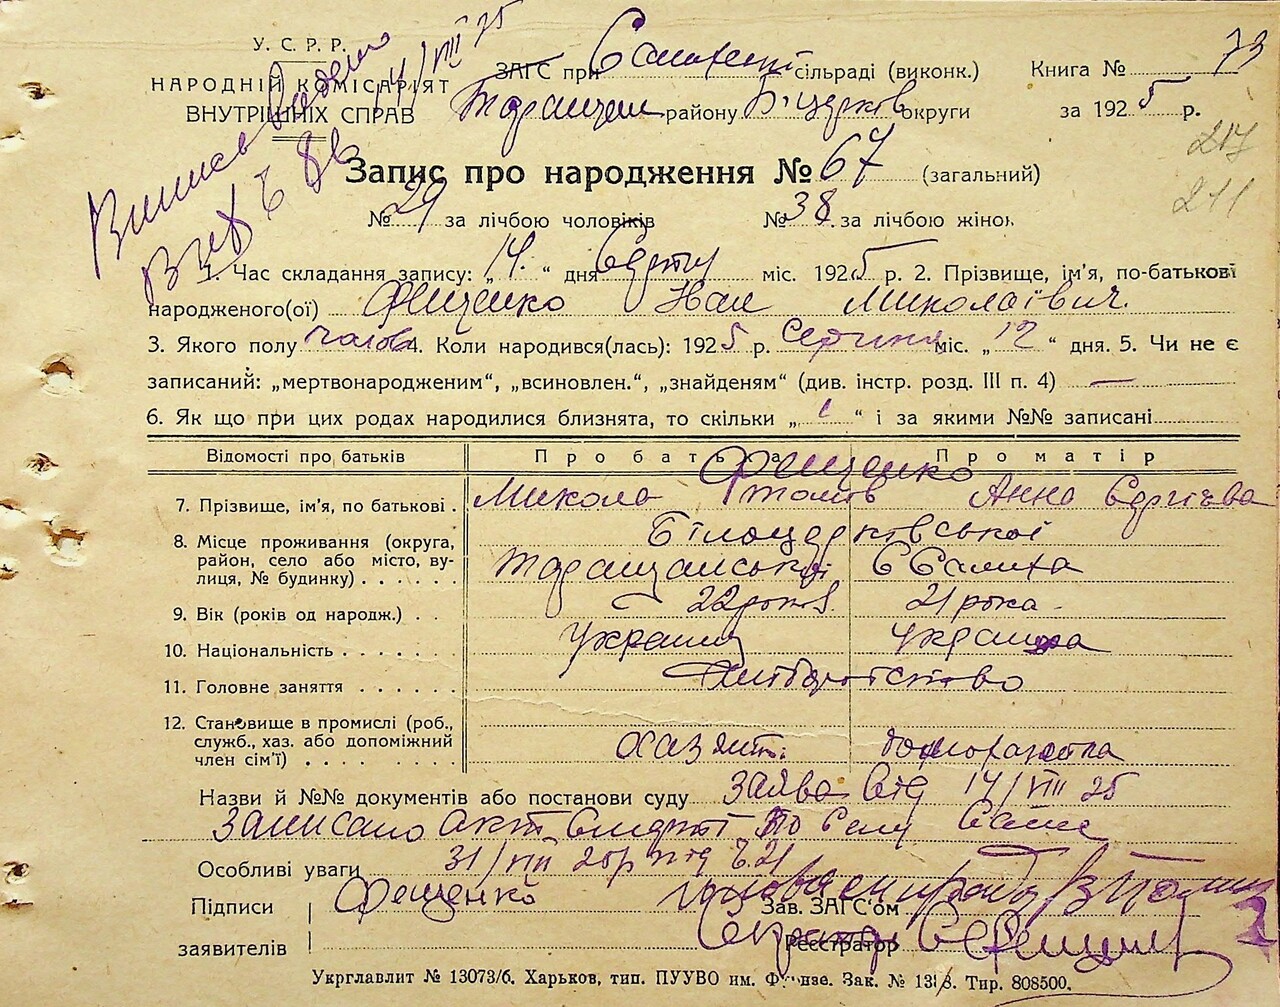 У. С. Р. Р.
НАРОДНІЙ КОМІСАРІЯТ
ВНУТРІШНІХ СПРАВ
14/VIII 25
ЗАГС при сільраді (виконк.)
районугу Б.церков округи
Книга № 73
за 1925 р.
217
211
Запис про народження № 67 (загальний)
№ 29 за лічбою чоловіків № 38 за лічбою жінок
1. Час складання запису: „14“ дня міс. 1925 р. 2. Прізвище, ім’я, по-батькові
народженого(ої) Фещенко Іван Миколаївич.
3. Якого полу чолов 4. Коли народився(лась): 1925 р. Серпня міс. „12“ дня. 5. Чи не є
записаний: „мертвонародженим“, „всиновлен.“, „знайденям“ (див. інстр. розд. III п. 4) —
6. Як що при цих родах народилися близнята, то скільки „ “ і за якими №№ записані
Відомості про батьків Про батька Про матір
Фещенко
7. Прізвище, ім’я, по батькові . Микола Анна
8. Місце проживання (округа, Білоцерковської
район, село або місто, ву- Таращанської
лиця, № будинку) . . . . . .
9. Вік (років од народж.) . . 22 років 21 рока
10. Національність . . . . . . . Украинц украинка
11. Головне заняття . . . . . . Хліборобство
12. Становище в промислі (роб.,
служб., хаз. або допоміжний
член сім’ї) . . . . . . . . .
Назви й №№ документів або постанови суду заява від 14/VIII 25
Записано акт смерті по селу
Особливі уваги 31/VIII 25р під № 21
Підписи Фещенко Зав. ЗАГС’ом
заявителів Реєстратор
Укрглавлит № 13073/б. Харьков, тип. ПУУВО им. Фрунзе. Зак. № Тир. 808500.